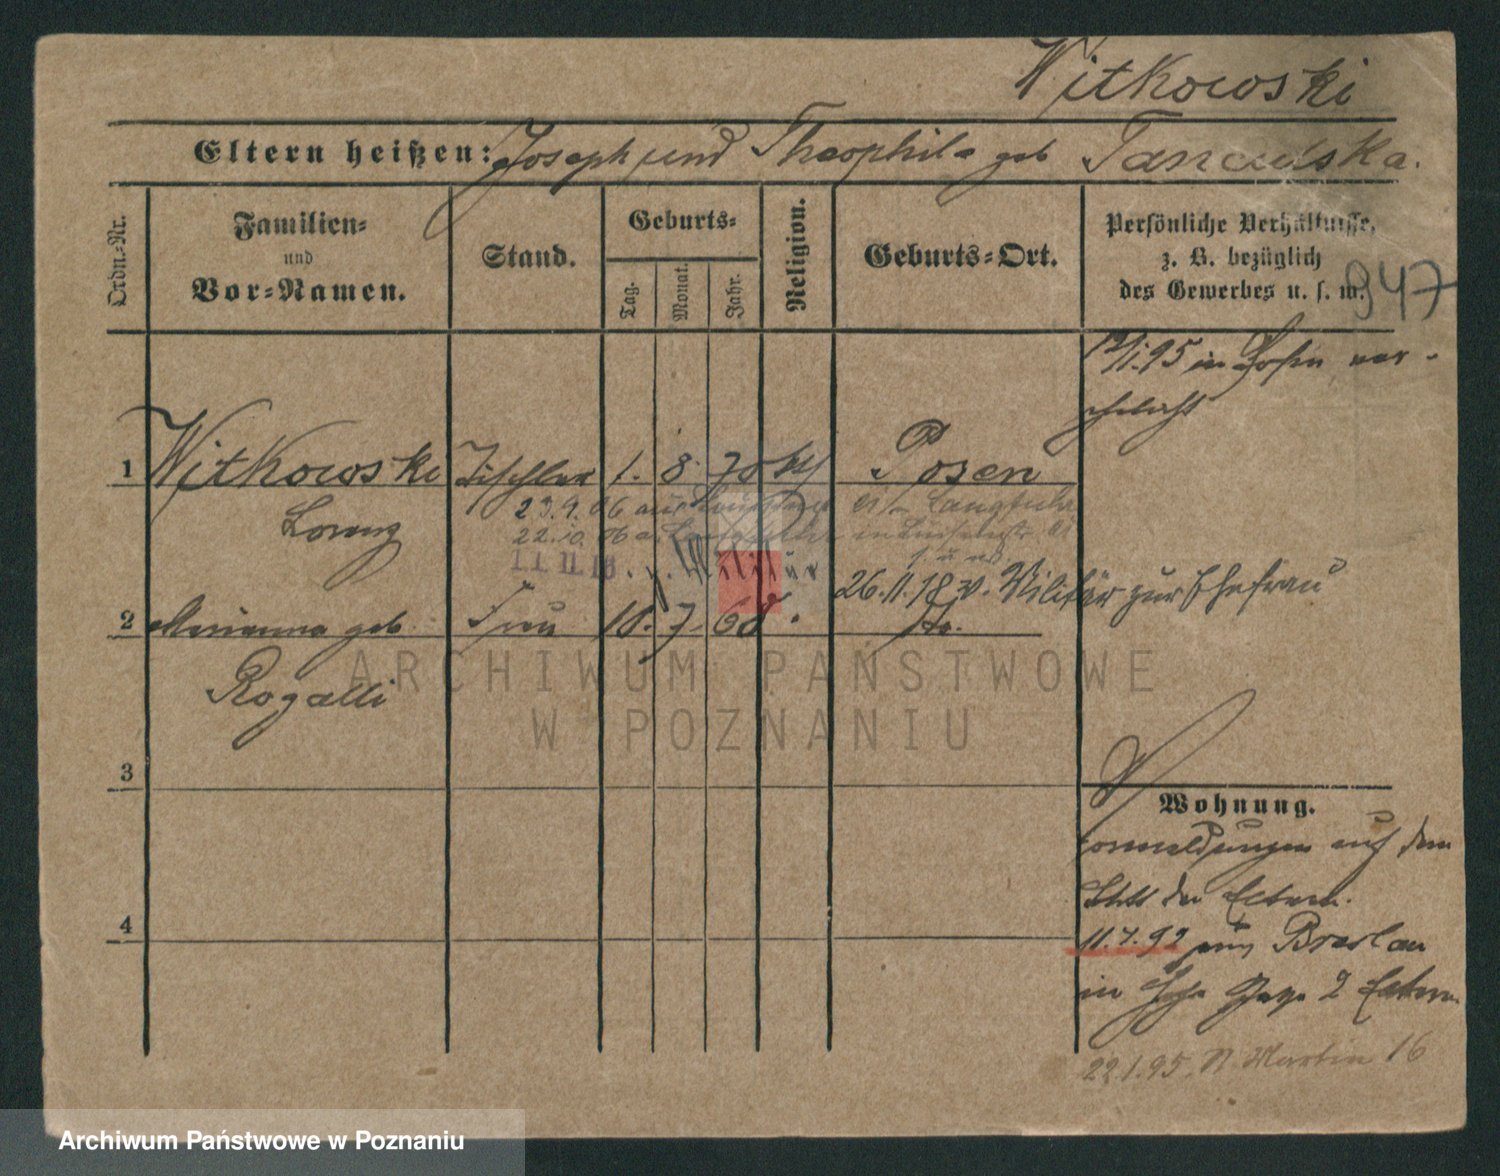 Witkowski
Eltern heißen: Joseph und Theophila geb Tanculska.
Ordn.-Nr.
Familien-
und
Vor-Namen.
Stand.
Geburts-
Tag.
Monat.
Jahr.
Religion.
Geburts-Ort.
Persönliche Verhältnisse,
z. B. bezüglich
des Gewerbes u. s. w.
947
1/1.95 in Posen ver-
ehelicht
1 Witkowski Tischler 1. 8. 70 kth Posen
Lorenz
23.9.06 aus Langfuhr
22.10.06 a. Langfuhr in
11.11.18. z. Militär
26.11.18 v. Militär zur Ehefrau
2 Marianna geb. Frau 10. 7. 68 do.
Rogalli
3
4
Wohnung.
Vormeldungen auf dem
Blatt der Eltern.
11.7.92 aus Breslau
in 2 Eltern
22.1.95. St. Martin 16
ARCHIWUM PAŃSTWOWE
W POZNANIU
Archiwum Państwowe w Poznaniu